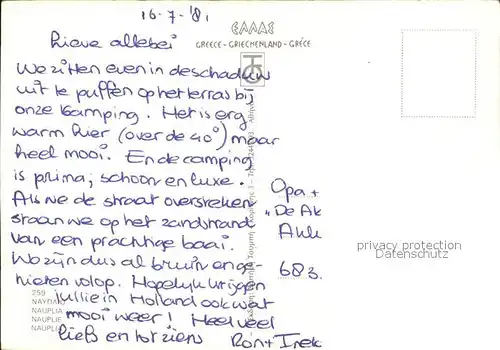 16-7-'81
ΕΛΛΑΣ
GREECE - GRIECHENLAND - GRÈCE
Lieve allebei
We zitten even in de schaduw
uit te puffen op het terras bij
onze Kamping. Het is erg
warm hier (over de 40°) maar
heel mooi. En de camping
is prima; schoon en luxe.
Als we de straat oversteken
staan we op het zandstrand
van een prachtige baai.
We zijn dus al bruin en ge-
nieten volop. Hopelijk krijgen
jullie in Holland ook wat
mooi weer! Heel veel
liefs en tot ziens Ron +
Opa +
"De Ak
683.
privacy protection
Datenschutz
250
NAUPLIA
NAUPLIE
NAUPLI